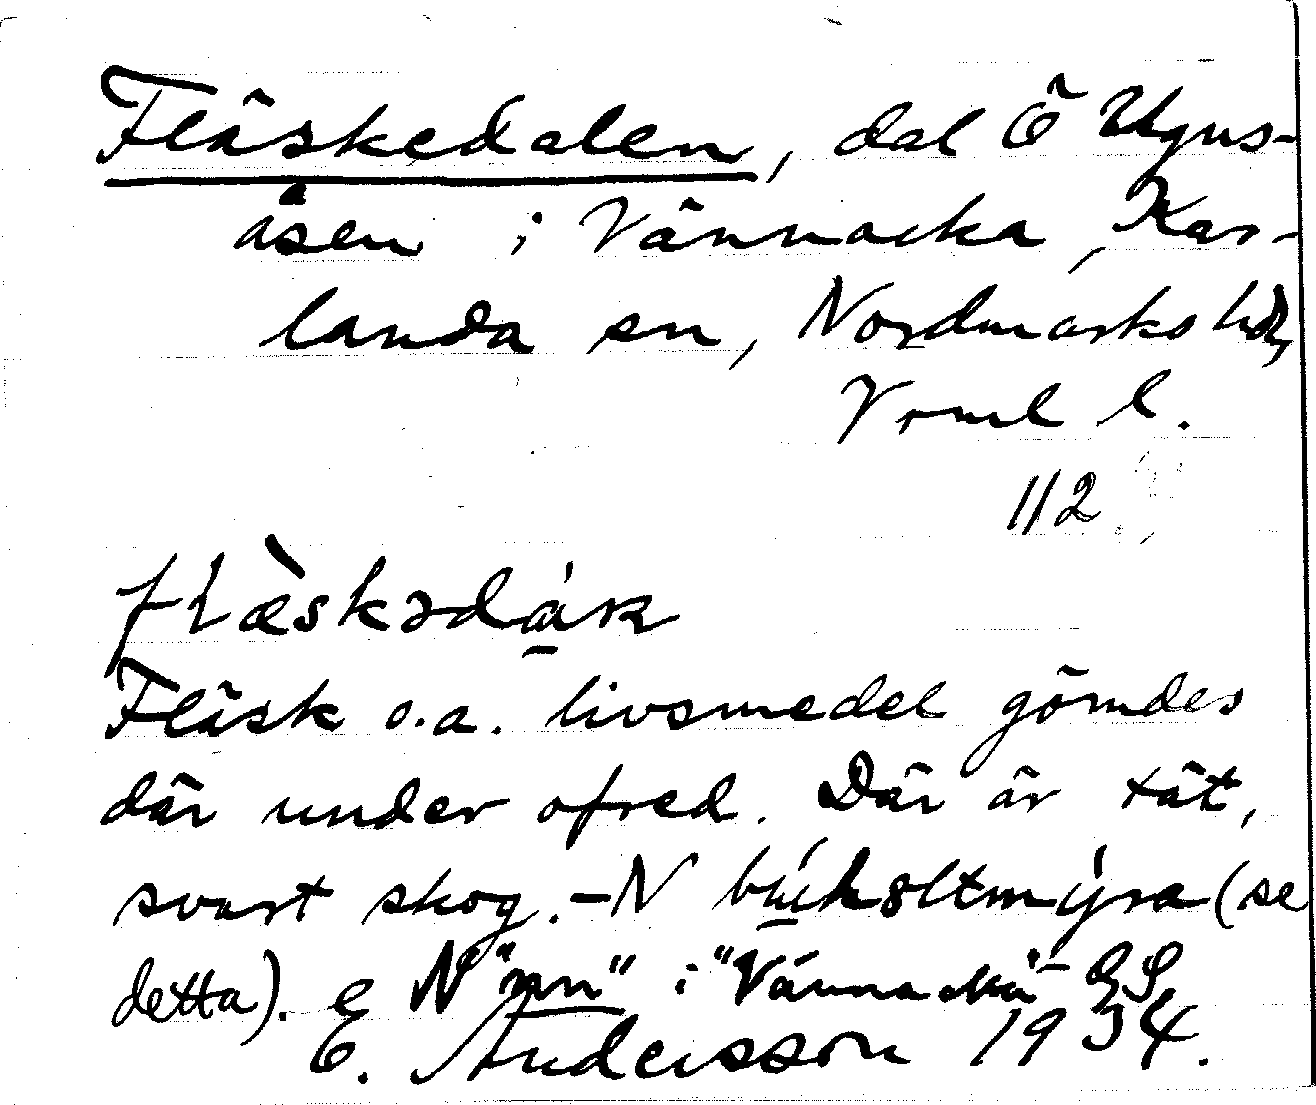 Fläskedalen, dal Ö Ugns-
åsen i Vännacka, Kar-
landa sn, Nordmarks hd,
Vrml l.
112
flæ̀skədá̱ɴ
Fläsk o.a. livsmedel gömdes
där under ofred. Där är tät,
svart skog. - N (se
detta). N "nn" i "Vännacka"
E. Andersson 1934.